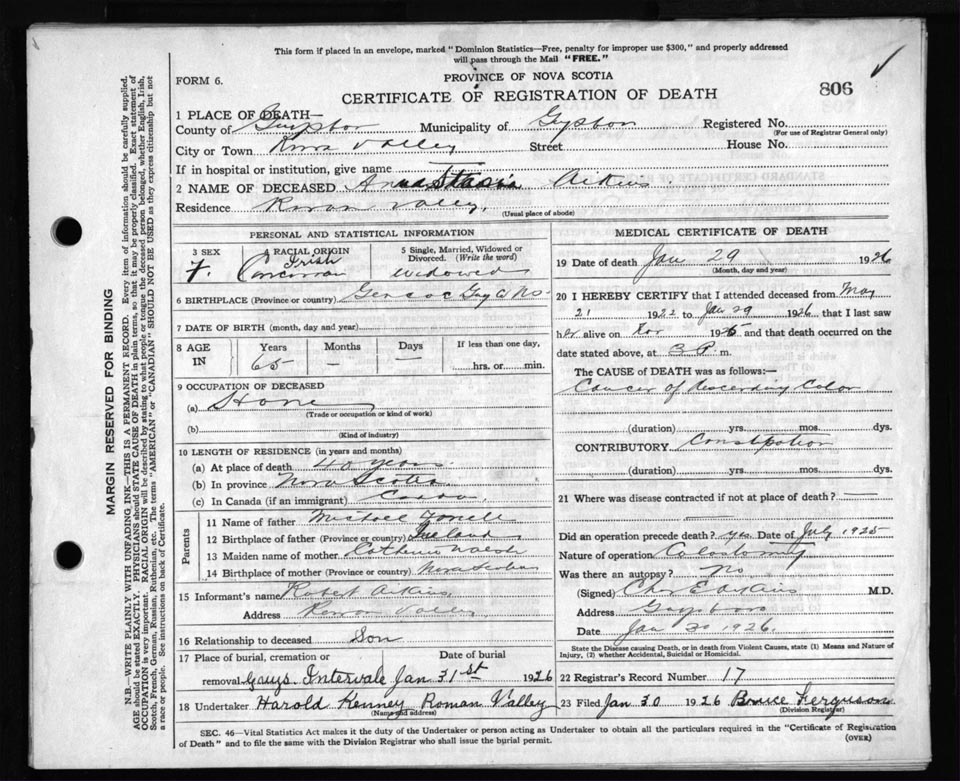 This form if placed in an envelope, marked "Dominion Statistics—Free, penalty for improper use $300," and properly addressed
will pass through the Mail "FREE."
FORM 6.
PROVINCE OF NOVA SCOTIA
806
CERTIFICATE OF REGISTRATION OF DEATH
1 PLACE OF DEATH—
County of Municipality of Registered No.
(For use of Registrar General only)
City or Town Valley Street House No.
If in hospital or institution, give name —
2 NAME OF DECEASED Annastasia Aikins
Residence Roman Valley,
(Usual place of abode)
PERSONAL AND STATISTICAL INFORMATION
3 SEX 4 RACIAL ORIGIN 5 Single, Married, Widowed or
Divorced. (Write the word)
F. Irish Widowed
6 BIRTHPLACE (Province or country)
7 DATE OF BIRTH (month, day and year)
8 AGE IN Years Months Days If less than one day,
65 — — hrs. or min.
9 OCCUPATION OF DECEASED
(a) Home
(Trade or occupation or kind of work)
(b)
(Kind of industry)
10 LENGTH OF RESIDENCE (in years and months)
(a) At place of death 40 years.
(b) In province Nova Scotia
(c) In Canada (if an immigrant) Canada
Parents
11 Name of father Michael
12 Birthplace of father (Province or country) Ireland
13 Maiden name of mother Catherine Walsh
14 Birthplace of mother (Province or country) Nova Scotia
15 Informant's name Robert Aikins
Address Roman Valley
16 Relationship to deceased Son
17 Place of burial, cremation or Date of burial
removal Guys. Intervale Jan 31st 1926
18 Undertaker Harold Kenney Roman Valley
(Name and address)
MEDICAL CERTIFICATE OF DEATH
19 Date of death Jan 29 1926
(Month, day and year)
20 I HEREBY CERTIFY that I attended deceased from May
21 1922 to Jan 29 1926 that I last saw
her alive on 1925 and that death occurred on
date stated above, at 3 P. m.
The CAUSE of DEATH was as follows:—
Cancer of Descending Colon
(duration) yrs. mos. dys.
CONTRIBUTORY Constipation
(duration) yrs. mos. dys.
21 Where was disease contracted if not at place of death? —
Did an operation precede death? yes. Date of July 1925
Nature of operation Colostomy
Was there an autopsy? No
(Signed) Chas E Aikins M.D.
Address Guysboro
Date Jan 30 1926.
State the Disease causing Death, or in death from Violent Causes, state (1) Means and Nature of
Injury, (2) whether Accidental, Suicidal or Homicidal.
22 Registrar's Record Number 17
23 Filed Jan 30 1926 Bruce Ferguson
(Division Registrar)
SEC. 46—Vital Statistics Act makes it the duty of the Undertaker or person acting as Undertaker to obtain all the particulars required in the "Certificate of Registration
of Death" and to file the same with the Division Registrar who shall issue the burial permit. (OVER)
MARGIN RESERVED FOR BINDING
N.B.—WRITE PLAINLY WITH UNFADING INK—THIS IS A PERMANENT RECORD. Every item of information should be carefully supplied.
AGE should be stated EXACTLY. PHYSICIANS should STATE CAUSE OF DEATH in plain terms, so that it may be properly classified. Exact statement of
OCCUPATION is very important. RACIAL ORIGIN will be described by stating to what people or tongue the deceased person belonged, whether English, Irish,
Scotch, French, German, Russian, Ruthenian, etc. The terms "AMERICAN" or "CANADIAN" SHOULD NOT BE USED as they express citizenship but not
a race or people. See instructions on back of Certificate.